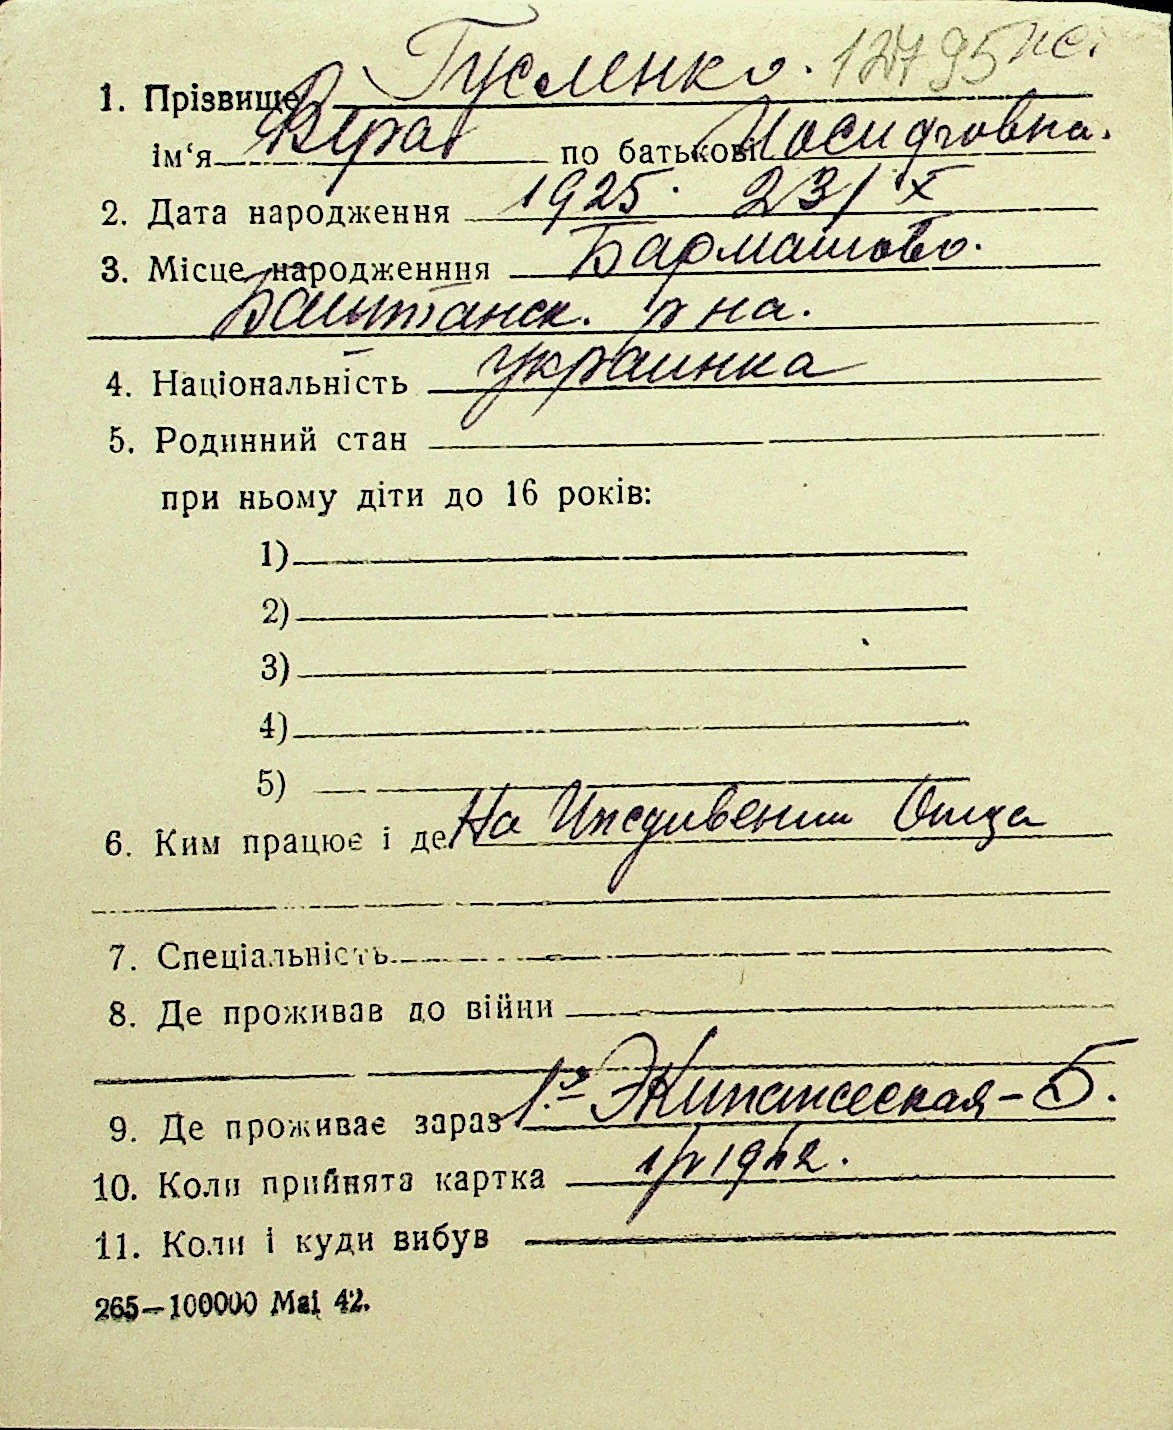 Гусленко. 12795 пс.
1. Прізвище
ім‘я Вера по батькові Иосифовна.
2. Дата народження 1925. 23/X
3. Місце народженння Бармашово.
Баштанск. р на.
4. Національність украинка
5. Родинний стан
при ньому діти до 16 років:
1)
2)
3)
4)
5)
6. Ким працює і де На Иждивении Отца
7. Спеціальність
8. Де проживав до війни
9. Де проживає зараз 1.ая Экипажеская – 5.
10. Коли прийнята картка 1942.
11. Коли і куди вибув
265—100000 Маї 42.